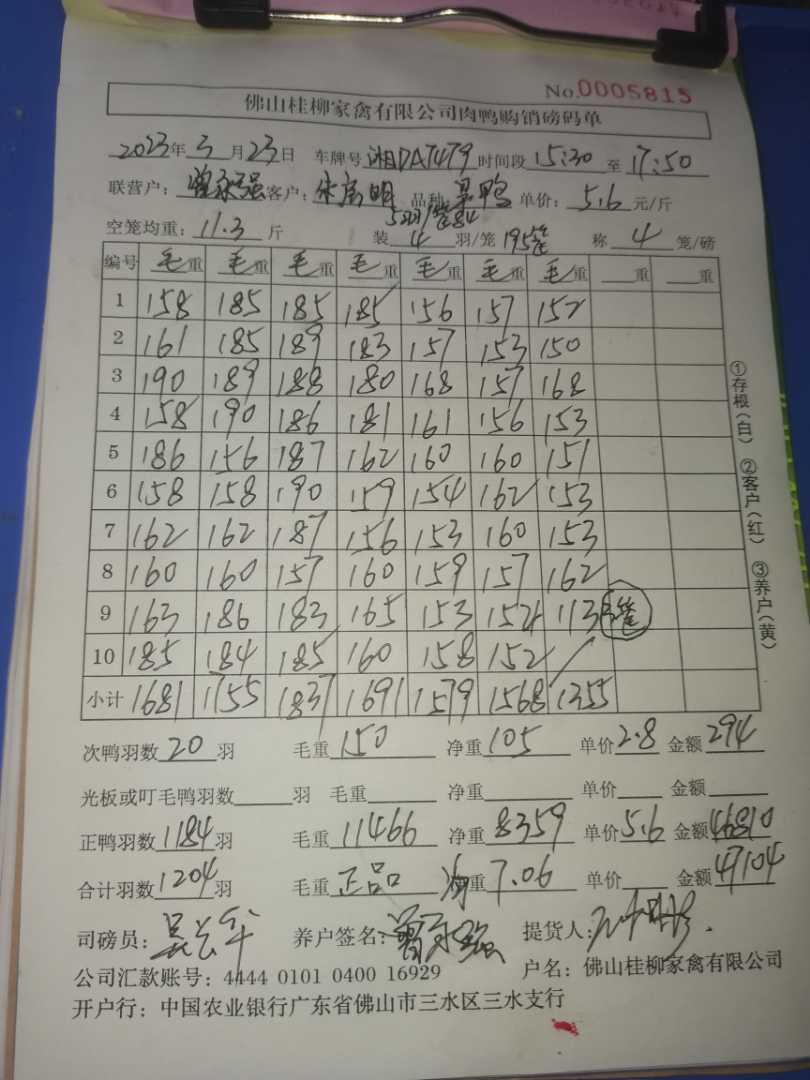 No.0005815
佛山桂柳家禽有限公司肉鸭购销磅码单
2023年3月23日 车牌号 湘DA7479 时间段 15:30 至 17:50
联营户: 曾永强 客户: 明 品种 鸭 单价: 5.6 元/斤
空笼均重: 11.3 斤 装 4 羽/笼 195笼 称 4 笼/磅
编号 毛重 毛重 毛重 毛重 毛重 毛重 毛重 重 重
1 158 185 185 185 156 157 152
2 161 185 189 183 157 153 150
3 190 189 188 180 168 157 168
4 158 190 186 181 161 156 153
5 186 156 187 162 160 160 151
6 158 158 190 159 154 162 153
7 162 162 187 156 153 160 153
8 160 160 157 160 159 157 162
9 163 186 183 165 153 154 113 笼
10 185 184 185 160 158 152
小计 1681 1755 1837 1691 1579 1568 1355
次鸭羽数 20 羽 毛重 150 净重 105 单价 2.8 金额 294
光板或叮毛鸭羽数 羽 毛重 净重 单价 金额
正鸭羽数 1184 羽 毛重 11466 净重 8359 单价 5.6 金额 46810
合计羽数 1204 羽 毛重 正品 重 7.06 单价 金额 47104
司磅员: 养户签名: 曾永强 提货人:
公司汇款账号: 4444 0101 0400 16929 户名: 佛山桂柳家禽有限公司
开户行: 中国农业银行广东省佛山市三水区三水支行
①存根(白) ②客户(红) ③养户(黄)